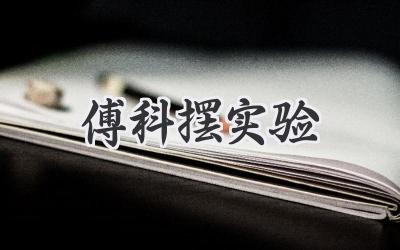 傅科摆实验